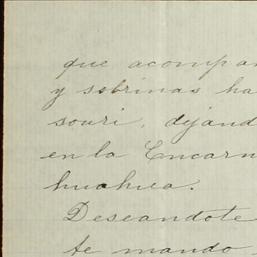 que acompañ
y sobrinas ha
souri, dejand
en la Encarn
huahua.
Deseandote
te mando